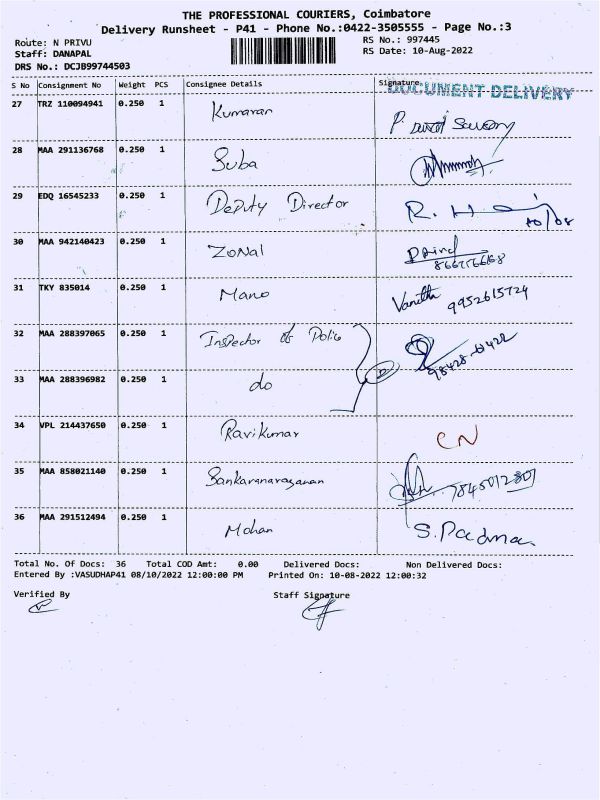 THE PROFESSIONAL COURIERS, Coimbatore
Delivery Runsheet - P41 - Phone No.:0422-3505555 - Page No.:3
Route: N PRIVU RS No.: 997445
Staff: DANAPAL RS Date: 10-Aug-2022
DRS No.: DCJB99744503
S No Consignment No Weight PCS Consignee Details Signature
DOCUMENT DELIVERY
27 TRZ 110094941 0.250 1 Kumaran
28 MAA 291136768 0.250 1 Suba
29 EDQ 16545233 0.250 1 Deputy Director 10/08
30 MAA 942140423 0.250 1 Zonal
31 TKY 835014 0.250 1 Mano Vanitha 9952615724
32 MAA 288397065 0.250 1 Inspector of Police
33 MAA 288396982 0.250 1 do
34 VPL 214437650 0.250 1 Ravikumar CN
35 MAA 858021140 0.250 1 Sankaranarayanan
36 MAA 291512494 0.250 1 Mohan S. Padma
Total No. Of Docs: 36 Total COD Amt: 0.00 Delivered Docs: Non Delivered Docs:
Entered By :VASUDHAP41 08/10/2022 12:00:00 PM Printed On: 10-08-2022 12:00:32
Verified By Staff Signature